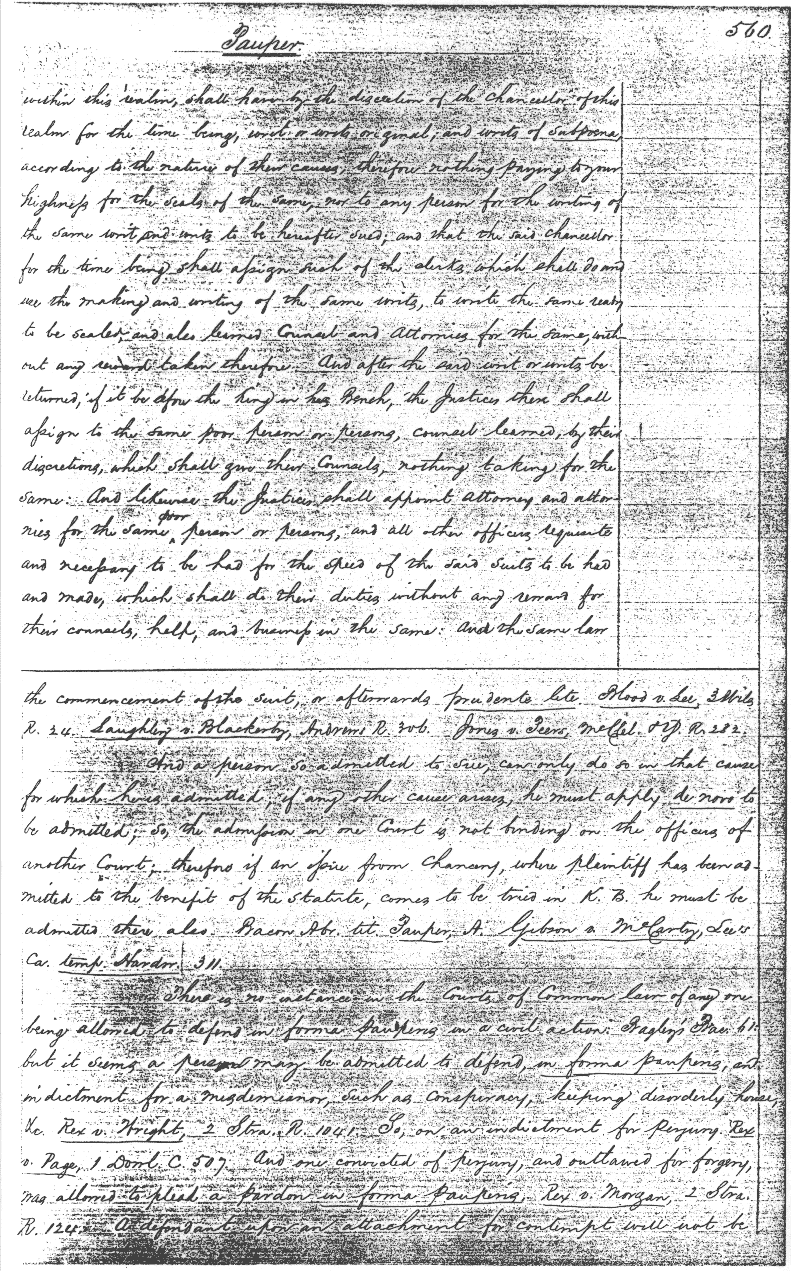 Pauper.
560
within this realm, shall have by the discretion of the chancellor of this
realm for the time being, writ or writs original, and writs of subpoena,
according to the nature of their causes, therefore nothing paying to your
highness for the seals of the same, nor to any person for the writing of
the same writ and writs to be hereafter sued; and that the said chancellor
for the time being shall assign such of the clerks, which shall do and
use the making and writing of the same writs, to write the same ready
to be sealed, and also learned Counsel and Attornies for the same, with-
out any reward taken therefore. And after the said writ or writs be
returned, if it be afore the King in his Bench, the Justices there shall
assign to the same poor person or persons, counsel learned, by their
discretions, which shall give their Counsels, nothing taking for the
same: And likewise the Justices shall appoint attorney and attor-
nies for the same poor person or persons, and all other officers requisite
and necessary to be had for the speed of the said suits to be had
and made, which shall do their duties without any reward for
their counsels, help, and business in the same: And the same law
the commencement of the suit, or afterwards prudente lite Blood v. Lee, 3 Wils
R. 24. Laughley v. Blackerby, Andrews R. 306. Jones v. Peers, McClel. & Y. R. 282.
And a person so admitted to sue, can only do so in that cause
for which he is admitted; if any other cause arises, he must apply de novo to
be admitted; so, the admission in one Court is not binding on the officers of
another Court; therefore if an issue from Chancery, where plaintiff has been ad-
mitted to the benefit of the statute, comes to be tried in K. B. he must be
admitted there also. Bacon Abr. tit. Pauper, A. Gibson v. McCarty, Lee's
Ca. temp. Hardw. 311.
There is no instance in the Courts of Common law of any one
being allowed to defend in forma pauperis in a civil action: Bagleys Prac. 61.
but it seems a person may be admitted to defend, in forma pauperis, an
indictment for a misdemeanor, such as conspiracy, keeping disorderly house,
&c. Rex v. Wright, 2 Stra. R. 1041. So, on an indictment for perjury. Rex
v. Page, 1 Dowl. C. 507. And one convicted of perjury, and outlawed for forgery,
was allowed to plead a pardon in forma pauperis, Rex v. Morgan, 2 Stra.
R. 124 A defendant upon an attachment for contempt will not be